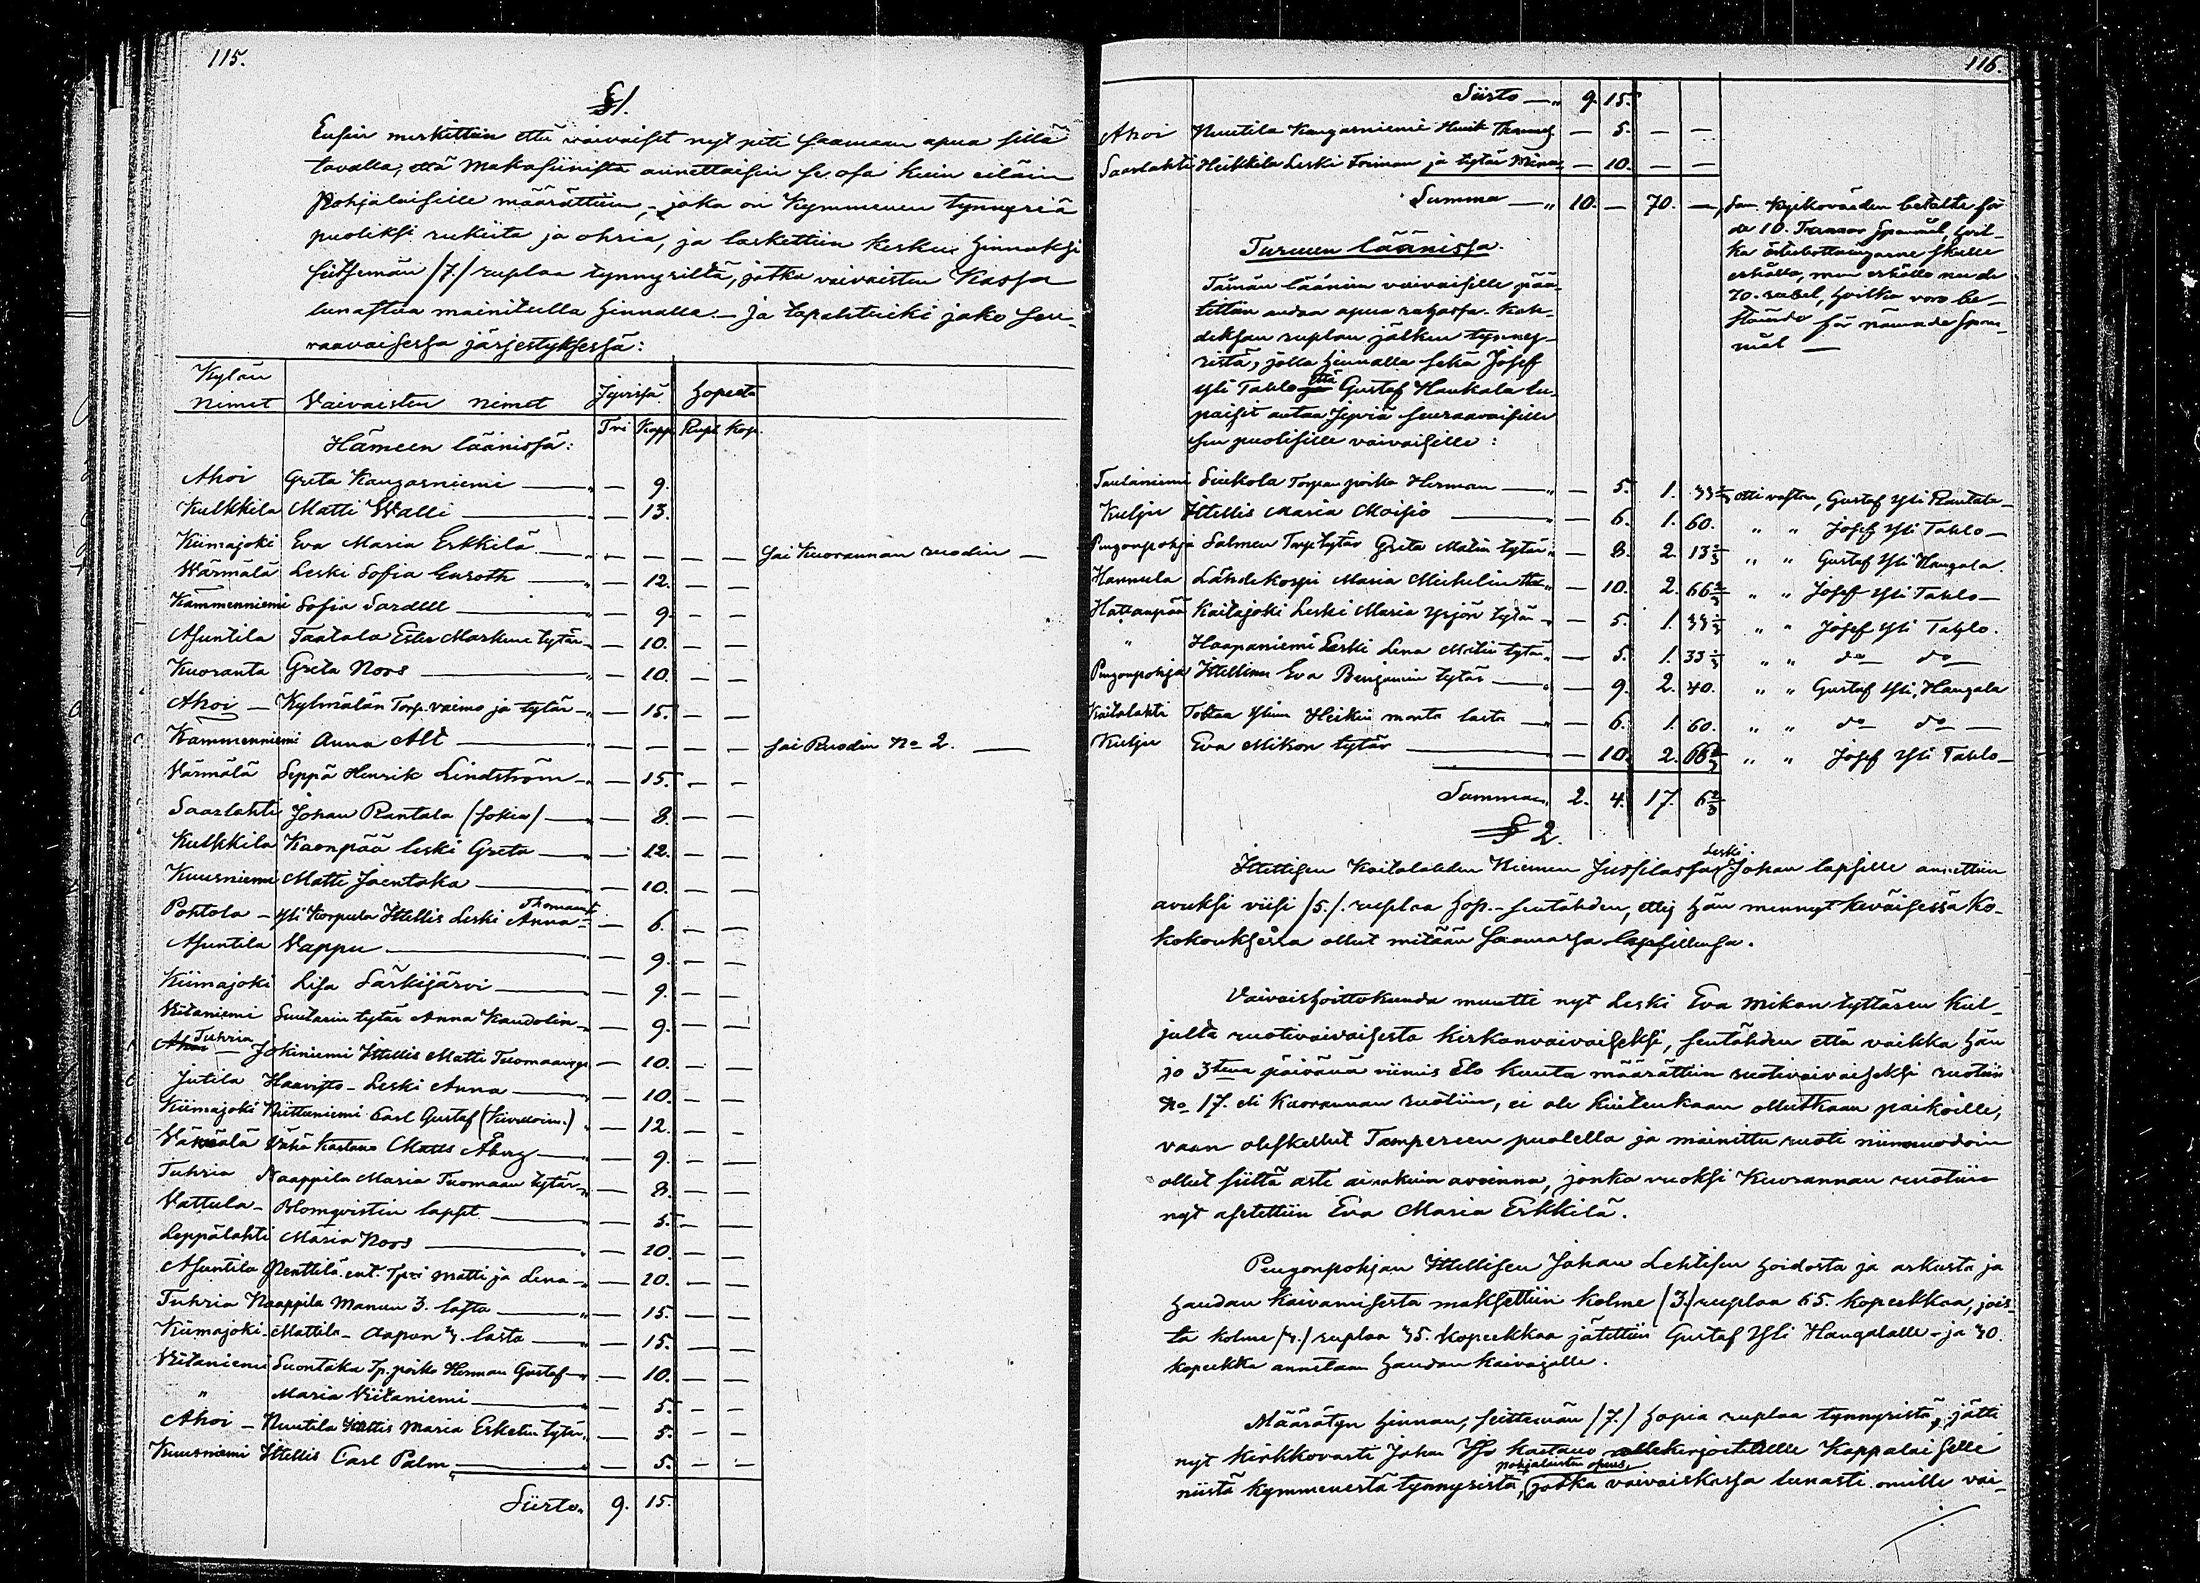 115.
§ 1.
Ensin merkittiin että vaivaiset nyt piti saamaan apua sillä
tavalla, että Makasiinista annettaisiin se osa kuin eiläin
Pohjalaisille määrättiin, – joka on Kymmenen tynnyriä
puoliksi rukiita ja ohria, ja laskettiin keski hinnaksi
seitsemän /7./ ruplaa tynnyriltä, jotka vaivaisten Kassa
lunastaa mainitulla hinnalla. – Ja tapahtuiki jako seu-
raavaisessa järjestyksessä:
Kylän nimet Vaivaisten nimet Jyvissä Hopeata
Tri Kapp. Rupl. Kop.
Hämeen läänissä:
Ahoi Greta Kangasniemi — „ — 9.
Kulkkila Matti Walli — „ — 13.
Kiimajoki Eva Maria Erkkilä — „ — — — — sai Kuorannan ruodin —
Wärmälä Leski Sofia Enroth — „ — 12. — —
Kämmenniemi Sofia Sardell — „ — 9. — —
Asuntila Taatala Ester Markun tytär — „ — 10. — —
Kuoranta Greta Noos — „ — 10. — —
Ahoi — Kylmälän Torp. vaimo ja tytär — „ — 15. — —
Kämmenniemi Anna Alt — „ — — — — sai Ruodin No 2. —
Värmälä Seppä Henrik Lindström — „ — 15. — —
Saarlahti Johan Rantala /sokia/ — „ — 8. — —
Kulkkila Kaonpää leski Greta — „ — 12. — —
Kuusniemi Matti Jaentaka — „ — 10. — —
Pohtola — Yli Korpula Ittellis Leski Anna Thomant. — 6. — —
Asuntila Vappu — „ — 9. — —
Kiimajoki Lisa Särkijärvi — „ — 9. — —
Viitaniemi Suutarin tytär Anna Kandolin — „ — 9. — —
Ahoi Tuhria — Jokiniemi Ittellis Matti Tuomaanp. — 10. — —
Jutila Haavisto — Leski Anna — „ — 10. — —
Kiimajoki Riittaniemi Carl Gustaf — „ — 12. — —
Värmälä Vähä Kastano Matts Åberg — „ — 9. — —
Tuhria Naappila Maria Tuomaan tytär — „ — 8. — —
Vattula — Blomqvistin lapset — „ — 5. — —
Leppälahti Maria Noos — „ — 20. — —
Asuntila Penttilä ent. Tpri Matti ja Lena — „ — 20. — —
Tuhria Naappila Manun 3. lasta — „ — 15. — —
Kiimajoki — Mattila — Aapon 3. lasta — „ — 15. — —
Viitaniemi Suontaka Tp. poika Herman Gustaf — „ — 10. — —
„ Maria Viitaniemi — „ — 5. — —
Ahoi — Nuutila Ittellis Maria Erkelin tytär. — 5. — —
Kuusniemi Ittellis Carl Palm — „ — 5. — —
Siirto „ 9. 15.
116.
Siirto — „ 9. 15.
Ahoi Nuutila Kangasniemi Henrik — 5. — —
Saarlahti Heikkila Leski Forsman ja tytär Mina — 10. — —
Summa — „ 10. — 70. —
San. Kyrkovärden betalte för
de 10. Tunnor Spanmål, hvil-
ka österbottningarne skulle
erhålla, men erhålla nu de
70. rubel, hvilka voro be-
stämde för nämnde Span-
mål —
Turuun läänissä.
Tämän läänin vaivaisille pää-
tettiin andaa apua rahassa. Kah-
deksan ruplan jälkeen tynnyr-
ristä, jolla hinnalla sekä Josef
Yli Tahlo että Gustaf Haukala lu-
paisit antaa Jyviä seuraavaisille
sen puolisille vaivaisille:
Taulaniemi Siukola Torpan poika Herman — „ — 5. 1. 33⅓ otti vastan, Gustaf Yli Rantala —
Kulju Ittellis Maria Moisio — „ — 6. 1. 60. „ „ Josef Yli Tahlo —
Pengonpohja Salmen Torp. tytär Greta Matin tytär „ — 8. 2. 13⅓ „ „ Gustaf Yli Haugala
Hannula Lähdekorpi Maria Michelin — 10. 2. 66⅔ „ „ Josef Yli Tahlo —
Hattanpää Kaitajoki Leski Maria Yrjön tytär — 5. 1. 33⅓ „ „ Josef Yli Tahlo.
„ Haapaniemi Leski Lena Matin tytär „ — 5. 1. 33⅓ „ „ do — do —
Pengonpohja Ittellinen Eva Benjamin tytär — „ — 9. 2. 40. „ „ Gustaf Yli, Haugala
Kaitalahti Heikin monta lasta — — 6. 1. 60. „ „ do — do —
Kulju Eva Mikon tytär — — 10. 2. 66⅔ „ „ Josef Yli Tahlo —
Summa „ 2. 4. 17. 6⅔
§ 2.
Ittellisen Kaitalahden Niemen Jussilassa Leski Johan lapsille annettiin
avuksi viisi /5./. ruplaa hop. — sentähden, ettei hän mennyt keväisessä ko-
kokouksessa ollut mitään saamassa lapsillensa.
Vaivaishoittokunda muutti nyt Leski Eva Mikon tyttären Kul-
julta ruotivaivaisesta kirkonvaivaiseksi, sentähden että vaikka hän
jo 3tena päivänä viimis Elo kuuta määrättiin ruotivaivaiseksi ruotiin
No 17. eli Kuorannan ruotiin, ei ole kuitenkaan ollutkaan paikoille,
vaan oleskellut Tampereen puolella ja mainittu ruoti niinmuodoin
ollut siittä asti aivakuin avoinna, jonka vuoksi Kuorannan ruotiin
nyt asetettiin Eva Maria Erkkilä.
Pengonpohjan Ittellisen Johan Lehtisen hoidosta ja arkusta ja
haudan kaivamisesta maksettiin kolme /3./ ruplaa 65. kopeekkaa, jois-
ta kolme /3./ ruplaa 35. kopeekkaa jätettiin Gustaf Yli Haugalalle – ja 30.
kopeekka annetaan haudan kaivajalle.
Määrätyn hinnan, seittemän /7./ hopia ruplaa tynnyristä, jätti
nyt Kirkkovarti Johan Iso Kastano allekirjoitetulle Kappalaiselle
niistä kymmenestä tynnyristä pohjalaisten apua, jotka vaivaiskassa lunasti omille vai-